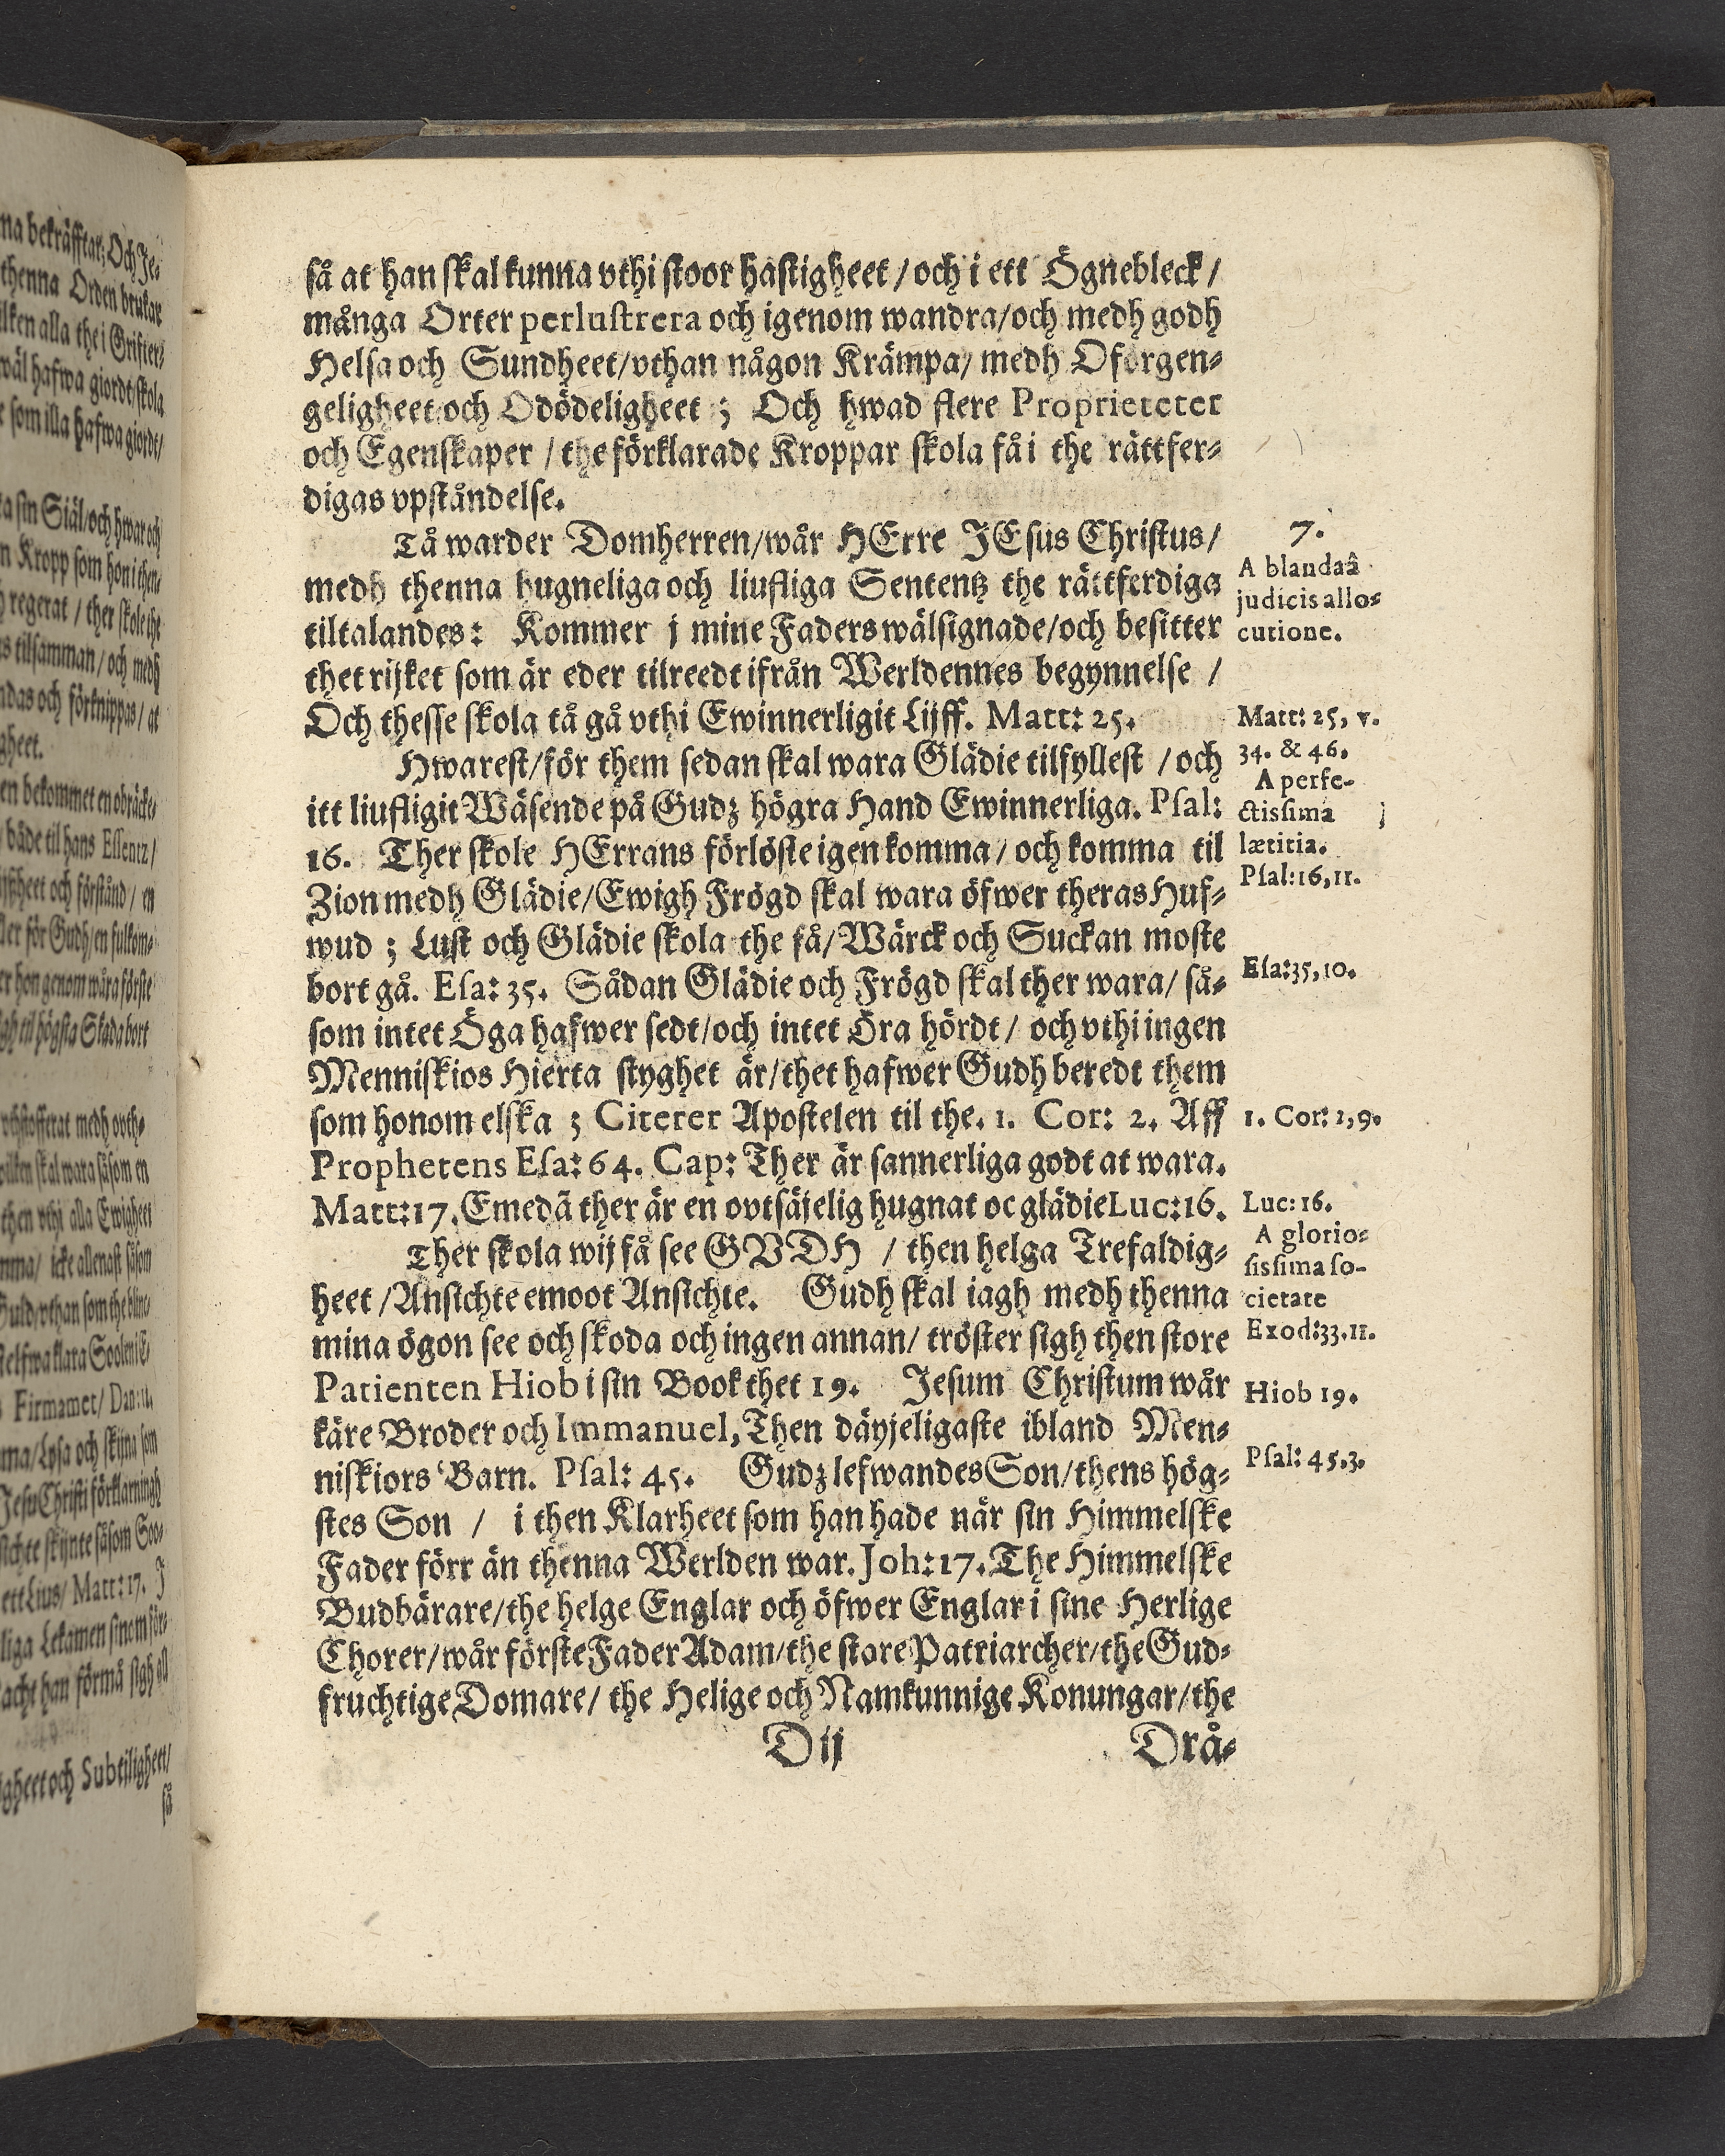 så at han skal kunna vthi stoor hastigheet / och i ett Ögnebleck /
många Orter perlustrera och igenom wandra/och medh godh
Helsa och Sundheet/vthan någon Krämpa/ medh Oförgen-
geligheet och Odödeligheet ; Och hwad flere Proprieteter
och Egenskaper / the förklarade Kroppar skola få i the rättfer-
digas vpståndelse.
Tå warder Domherren/wår HErre JEsus Christus/
medh thenna hugneliga och liufliga Sententz the rättferdiga
tiltalandes: Kommer j mine Faders wälsignade/och besitter
thet rijket som är eder tilreedt ifrån Werldennes begynnelse /
Och thesse skola tå gå vthi Ewinnerligit Lijff. Matt: 25.
Hwarest/för them sedan skal wara Glädie tilfyllest / och
itt liufligit Wäsende på Gudz högra Hand Ewinnerliga. Psal:
16. Ther skole HErrans förlöste igen komma / och komma til
Zion medh Glädie/Ewigh Frögd skal wara öfwer theras Huf-
wud ; Lust och Glädie skola the få/ Wärck och Suckan moste
bort gå. Esa: 35. Sådan Glädie och Frögd skal ther wara/ så-
som intet Öga hafwer sedt/och intet Öra hördt / och vthi ingen
Menniskios Hierta styghet är/thet hafwer Gudh beredt them
som honom elska ; Citerer Apostelen til the. 1. Cor: 2. Aff
Prophetens Esa: 64. Cap: Ther är sannerliga godt at wara.
Matt: 17. Emedã ther är en ovtsäjelig hugnat oc glädie Luc: 16.
Ther skola wij få see GVDH / then helga Trefaldig-
heet / Ansichte emoot Ansichte. Gudh skal iagh medh thenna
mina ögon see och skoda och ingen annan/ tröster sigh then store
Patienten Hiob i sin Book thet 19. Jesum Christum wår
käre Broder och Immanuel, Then däyjeligaste ibland Men-
niskiors Barn. Psal: 45. Gudz lefwandes Son/thens hög-
stes Son / i then Klarheet som han hade när sin Himmelske
Fader förr än thenna Werlden war. Joh: 17. The Himmelske
Budbärare/the helge Englar och öfwer Englar i sine Herlige
Chorer/wår förste Fader Adam/the store Patriarcher/the Gud-
fruchtige Domare/ the Helige och Namkunnige Konungar/the
D ij
Drå-
7.
A blandaâ
judicis allo-
cutione.
Matt: 25, v.
34. & 46.
A perfe-
ctissima
lætitia.
Psal: 16, 11.
Esa: 35, 10.
1. Cor: 2, 9.
Luc: 16.
A glorio-
sissima so-
cietate
Exod: 33. 11.
Hiob 19.
Psal: 45. 3.